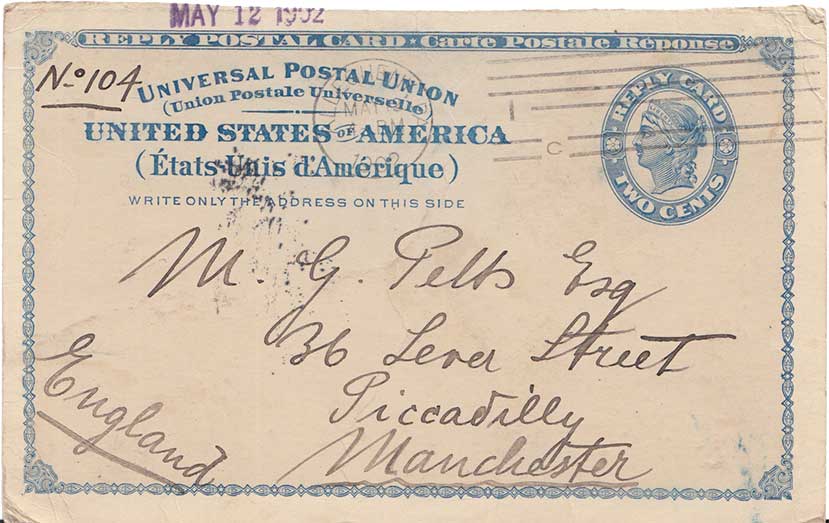 MAY 12 1902
REPLY POSTAL CARD ★ Carte Postale Réponse
Nº 104
UNIVERSAL POSTAL UNION
(Union Postale Universelle)
UNITED STATES OF AMERICA
(États-Unis d'Amérique)
WRITE ONLY THE ADDRESS ON THIS SIDE
MAY
PM
1902
1
C
REPLY CARD
TWO CENTS
M. G. Pelts Esq
36 Lever Street
Piccadilly
Manchester
England